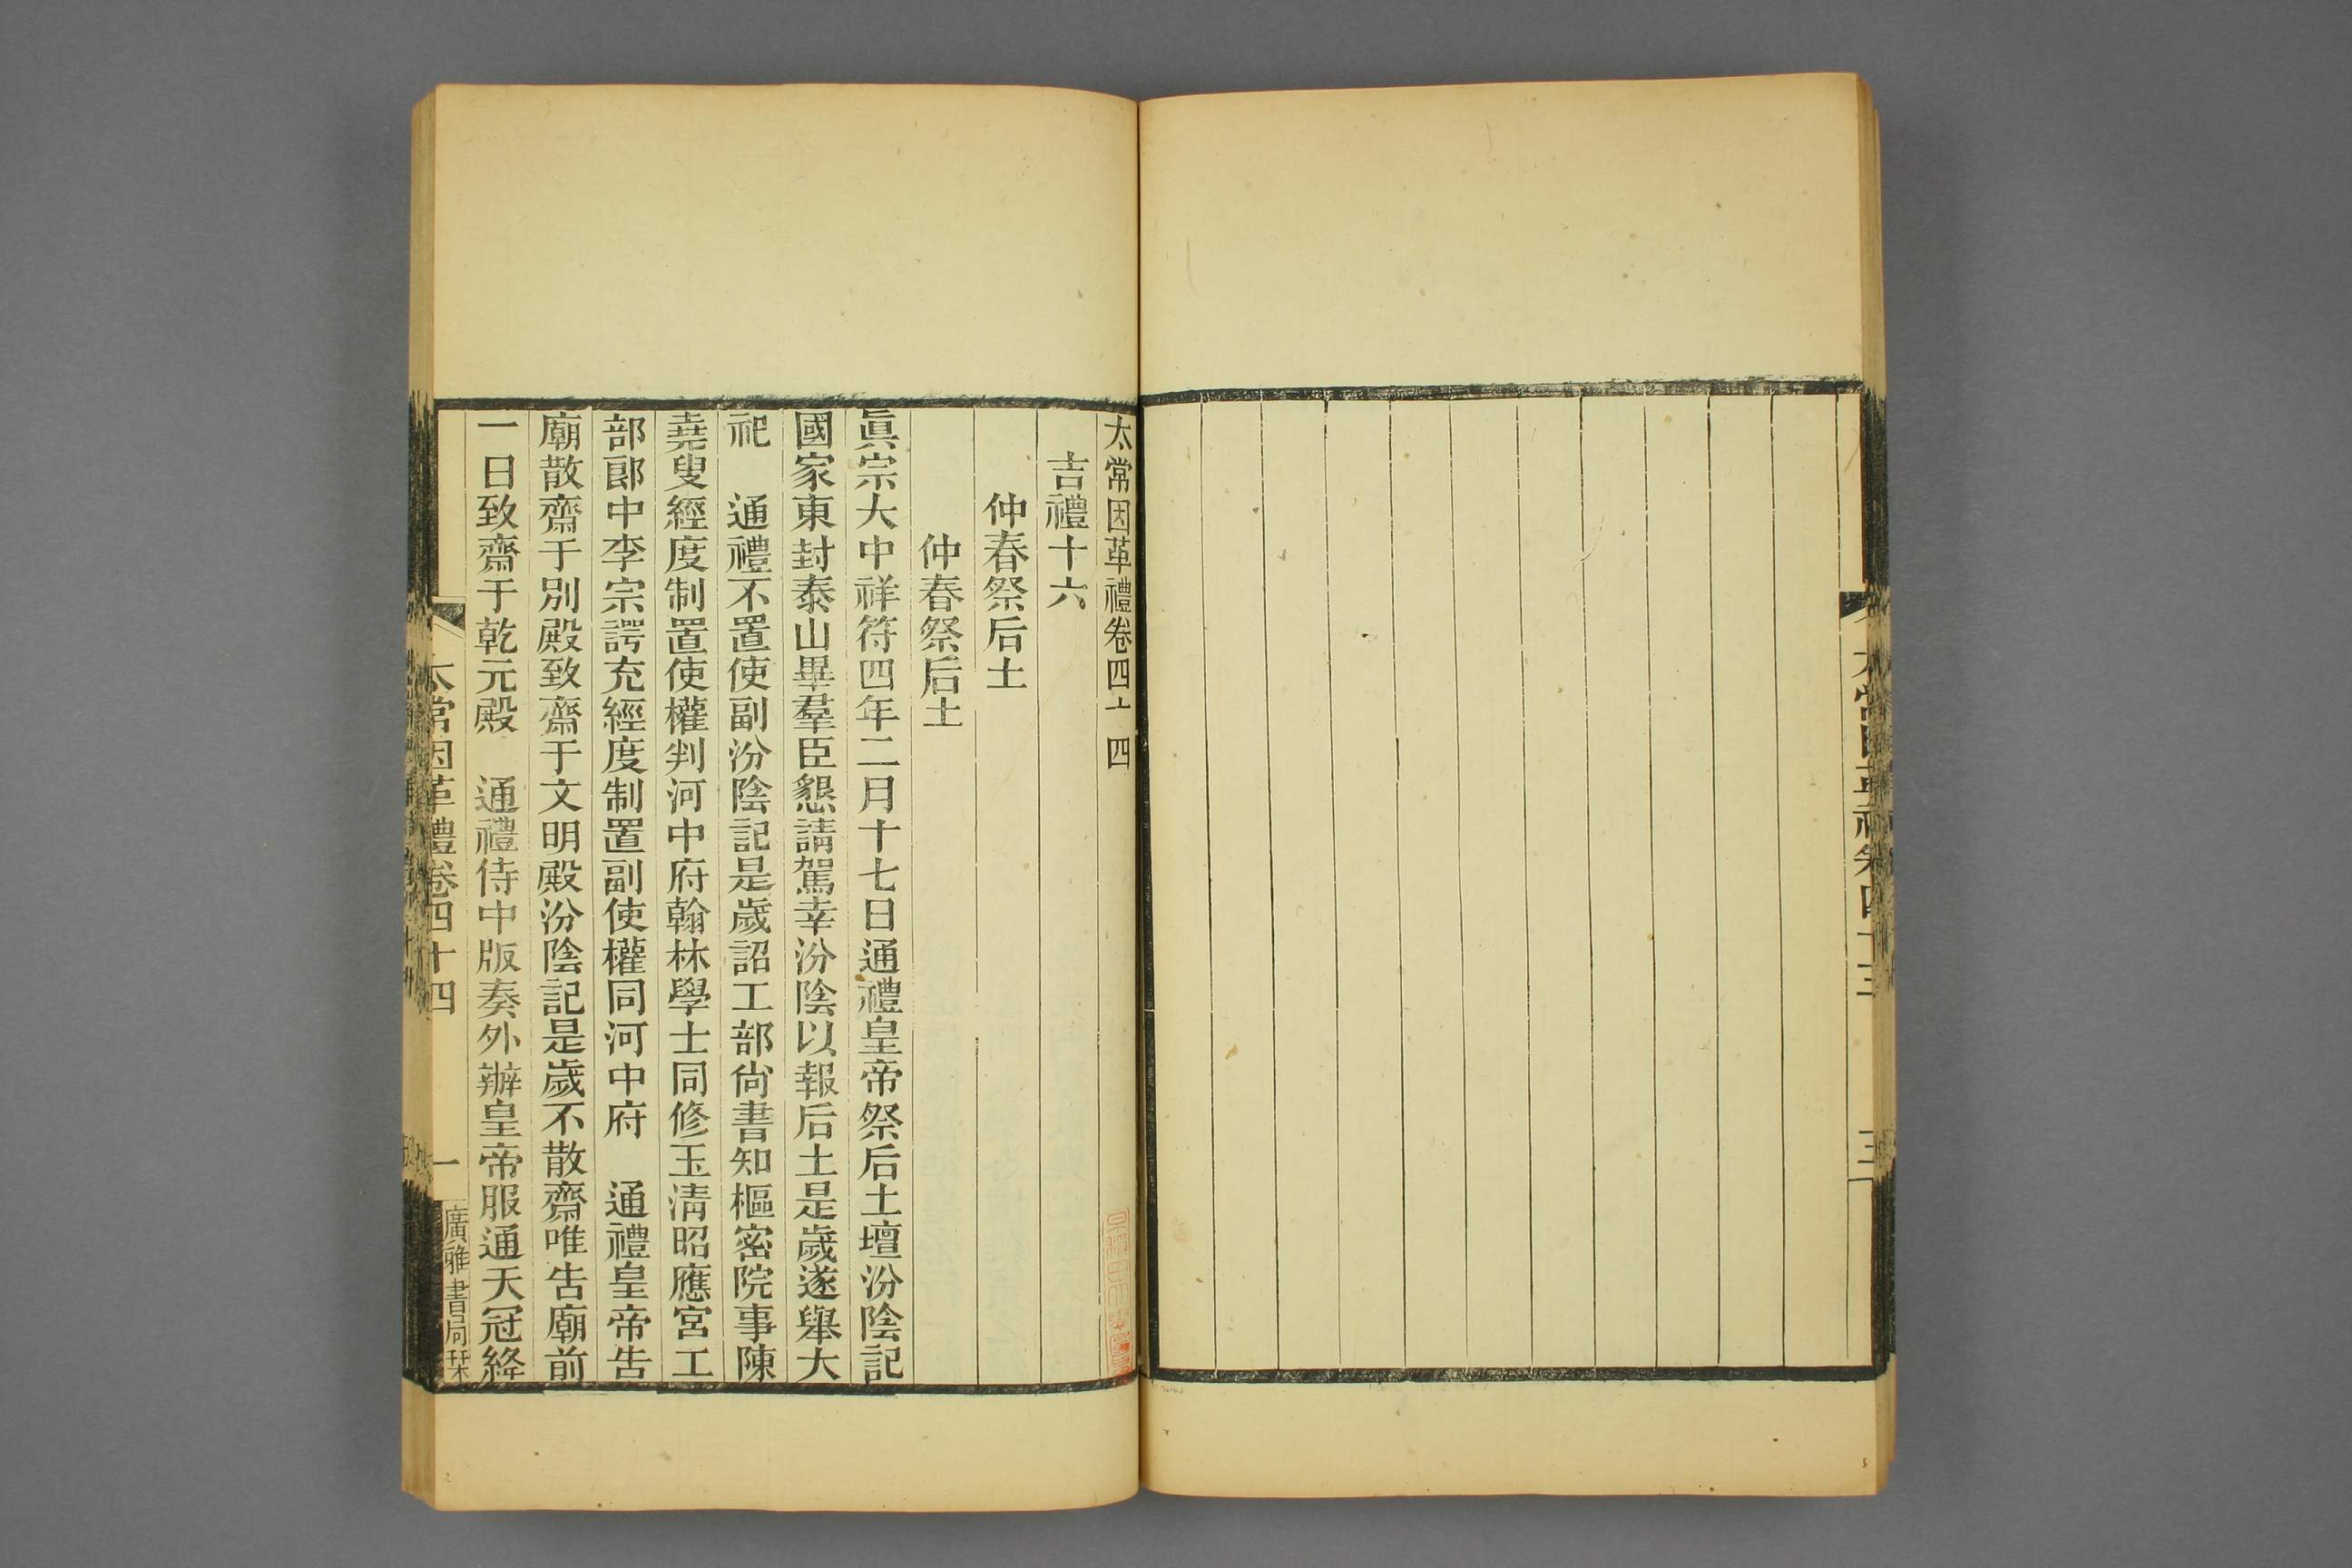 太常因革禮卷四十三
三
太常因革禮卷四十四
吉禮十六
仲春祭后土
仲春祭后土
眞宗大中祥符四年二月十七日通禮皇帝祭后土壇汾陰記
國家東封泰山畢羣臣懇請駕幸汾陰以報后土是歲遂舉大
祀　通禮不置使副汾陰記是歲詔工部尙書知樞密院事陳
堯叟經度制置使權判河中府翰林學士同修玉淸昭應宮工
部郎中李宗諤充經度制置副使權同河中府　通禮皇帝告
廟散齋于別殿致齋于文明殿汾陰記是歲不散齋唯告廟前
一日致齋于乾元殿　通禮侍中版奏外辦皇帝服通天冠絳
太常因革禮卷四十四
一
廣雅書局栞